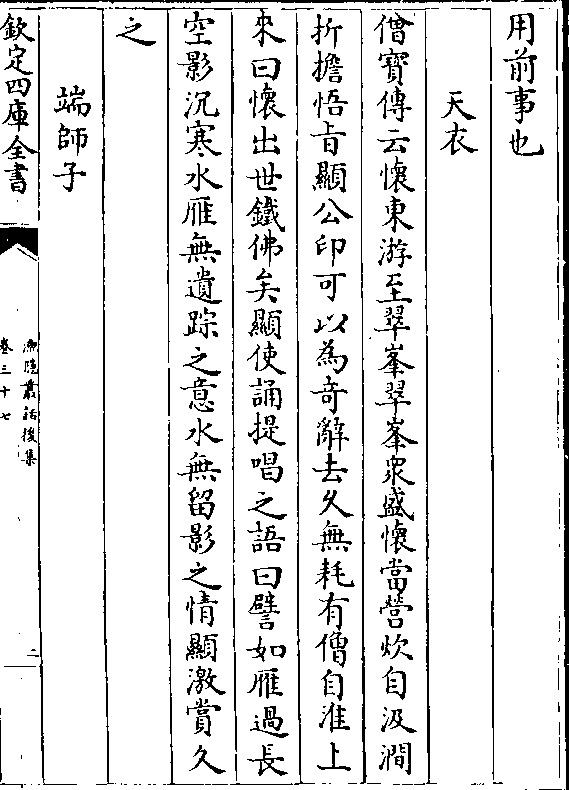 用前事也
天衣
僧寶傳云懷東游至翠峯翠峯衆盛懷當營炊自汲澗
折擔悟旨顯公印可以為奇辭去久無耗有僧自淮上
來曰懷出世鐵佛矣顯使誦提唱之語曰譬如雁過長
空影沉寒水雁無遺踪之意水無留影之情顯激賞久
之
端師子
欽定四庫全書
漁隱叢話後集
卷三十七
二